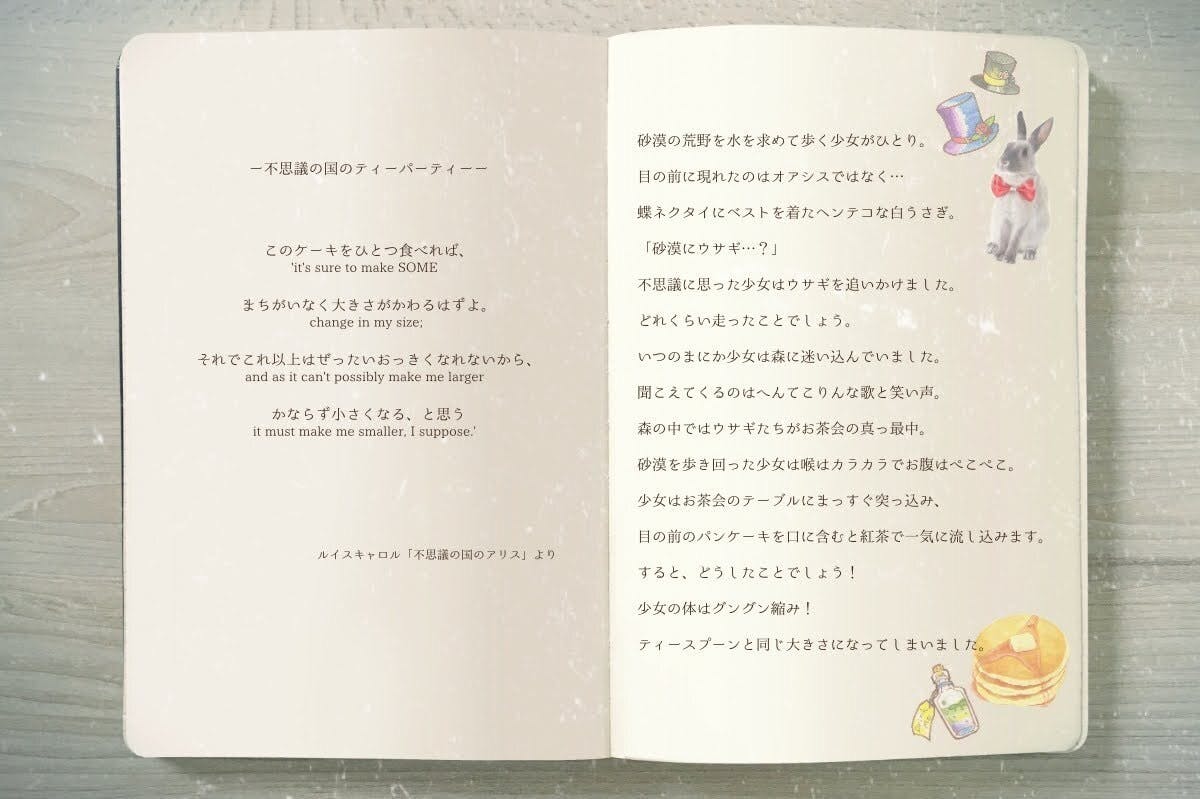 ー不思議の国のティーパーティーー
このケーキをひとつ食べれば、
'it's sure to make SOME
まちがいなく大きさがかわるはずよ。
change in my size;
それでこれ以上はぜったいおっきくなれないから、
and as it can't possibly make me larger
かならず小さくなる、と思う
it must make me smaller, I suppose.'
ルイスキャロル「不思議の国のアリス」より
砂漠の荒野を水を求めて歩く少女がひとり。
目の前に現れたのはオアシスではなく…
蝶ネクタイにベストを着たヘンテコな白うさぎ。
「砂漠にウサギ…？」
不思議に思った少女はウサギを追いかけました。
どれくらい走ったことでしょう。
いつのまにか少女は森に迷い込んでいました。
聞こえてくるのはへんてこりんな歌と笑い声。
森の中ではウサギたちがお茶会の真っ最中。
砂漠を歩き回った少女は喉はカラカラでお腹はぺこぺこ。
少女はお茶会のテーブルにまっすぐ突っ込み、
目の前のパンケーキを口に含むと紅茶で一気に流し込みます。
すると、どうしたことでしょう！
少女の体はグングン縮み！
ティースプーンと同じ大きさになってしまいました。